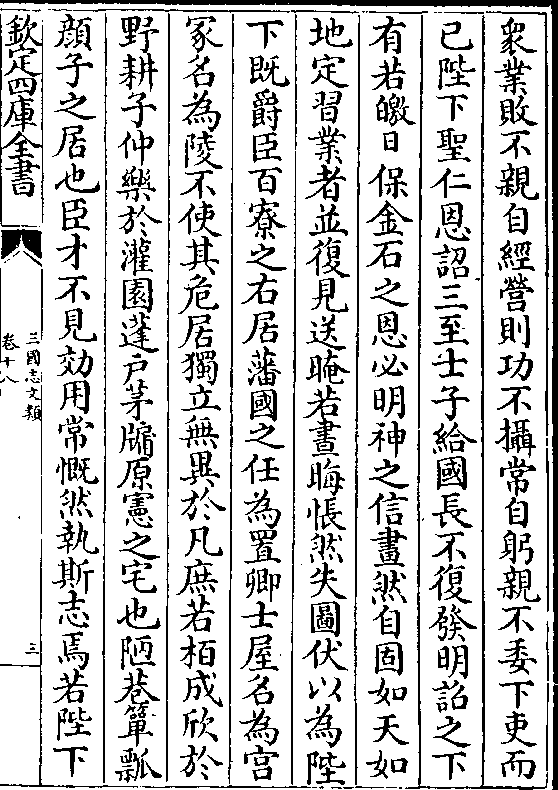 衆業敗不親自經營則功不攝常自躬親不委下吏而
已陛下聖仁恩詔三至士子給國長不復發明詔之下
有若皦日保金石之恩必明神之信畫然自固如天如
地定習業者並復見送晻若晝晦悵然失圖伏以為陛
下既爵臣百寮之右居藩國之任為置卿士屋名為宫
冢名為陵不使其危居獨立無異於凡庶若柏成欣於
野耕子仲樂於灌園蓬戸茅牖原憲之宅也陋巷簞瓢
顔子之居也臣才不見効用常慨然執斯志焉若陛下
欽定四庫全書
三國志文類
卷十八
三